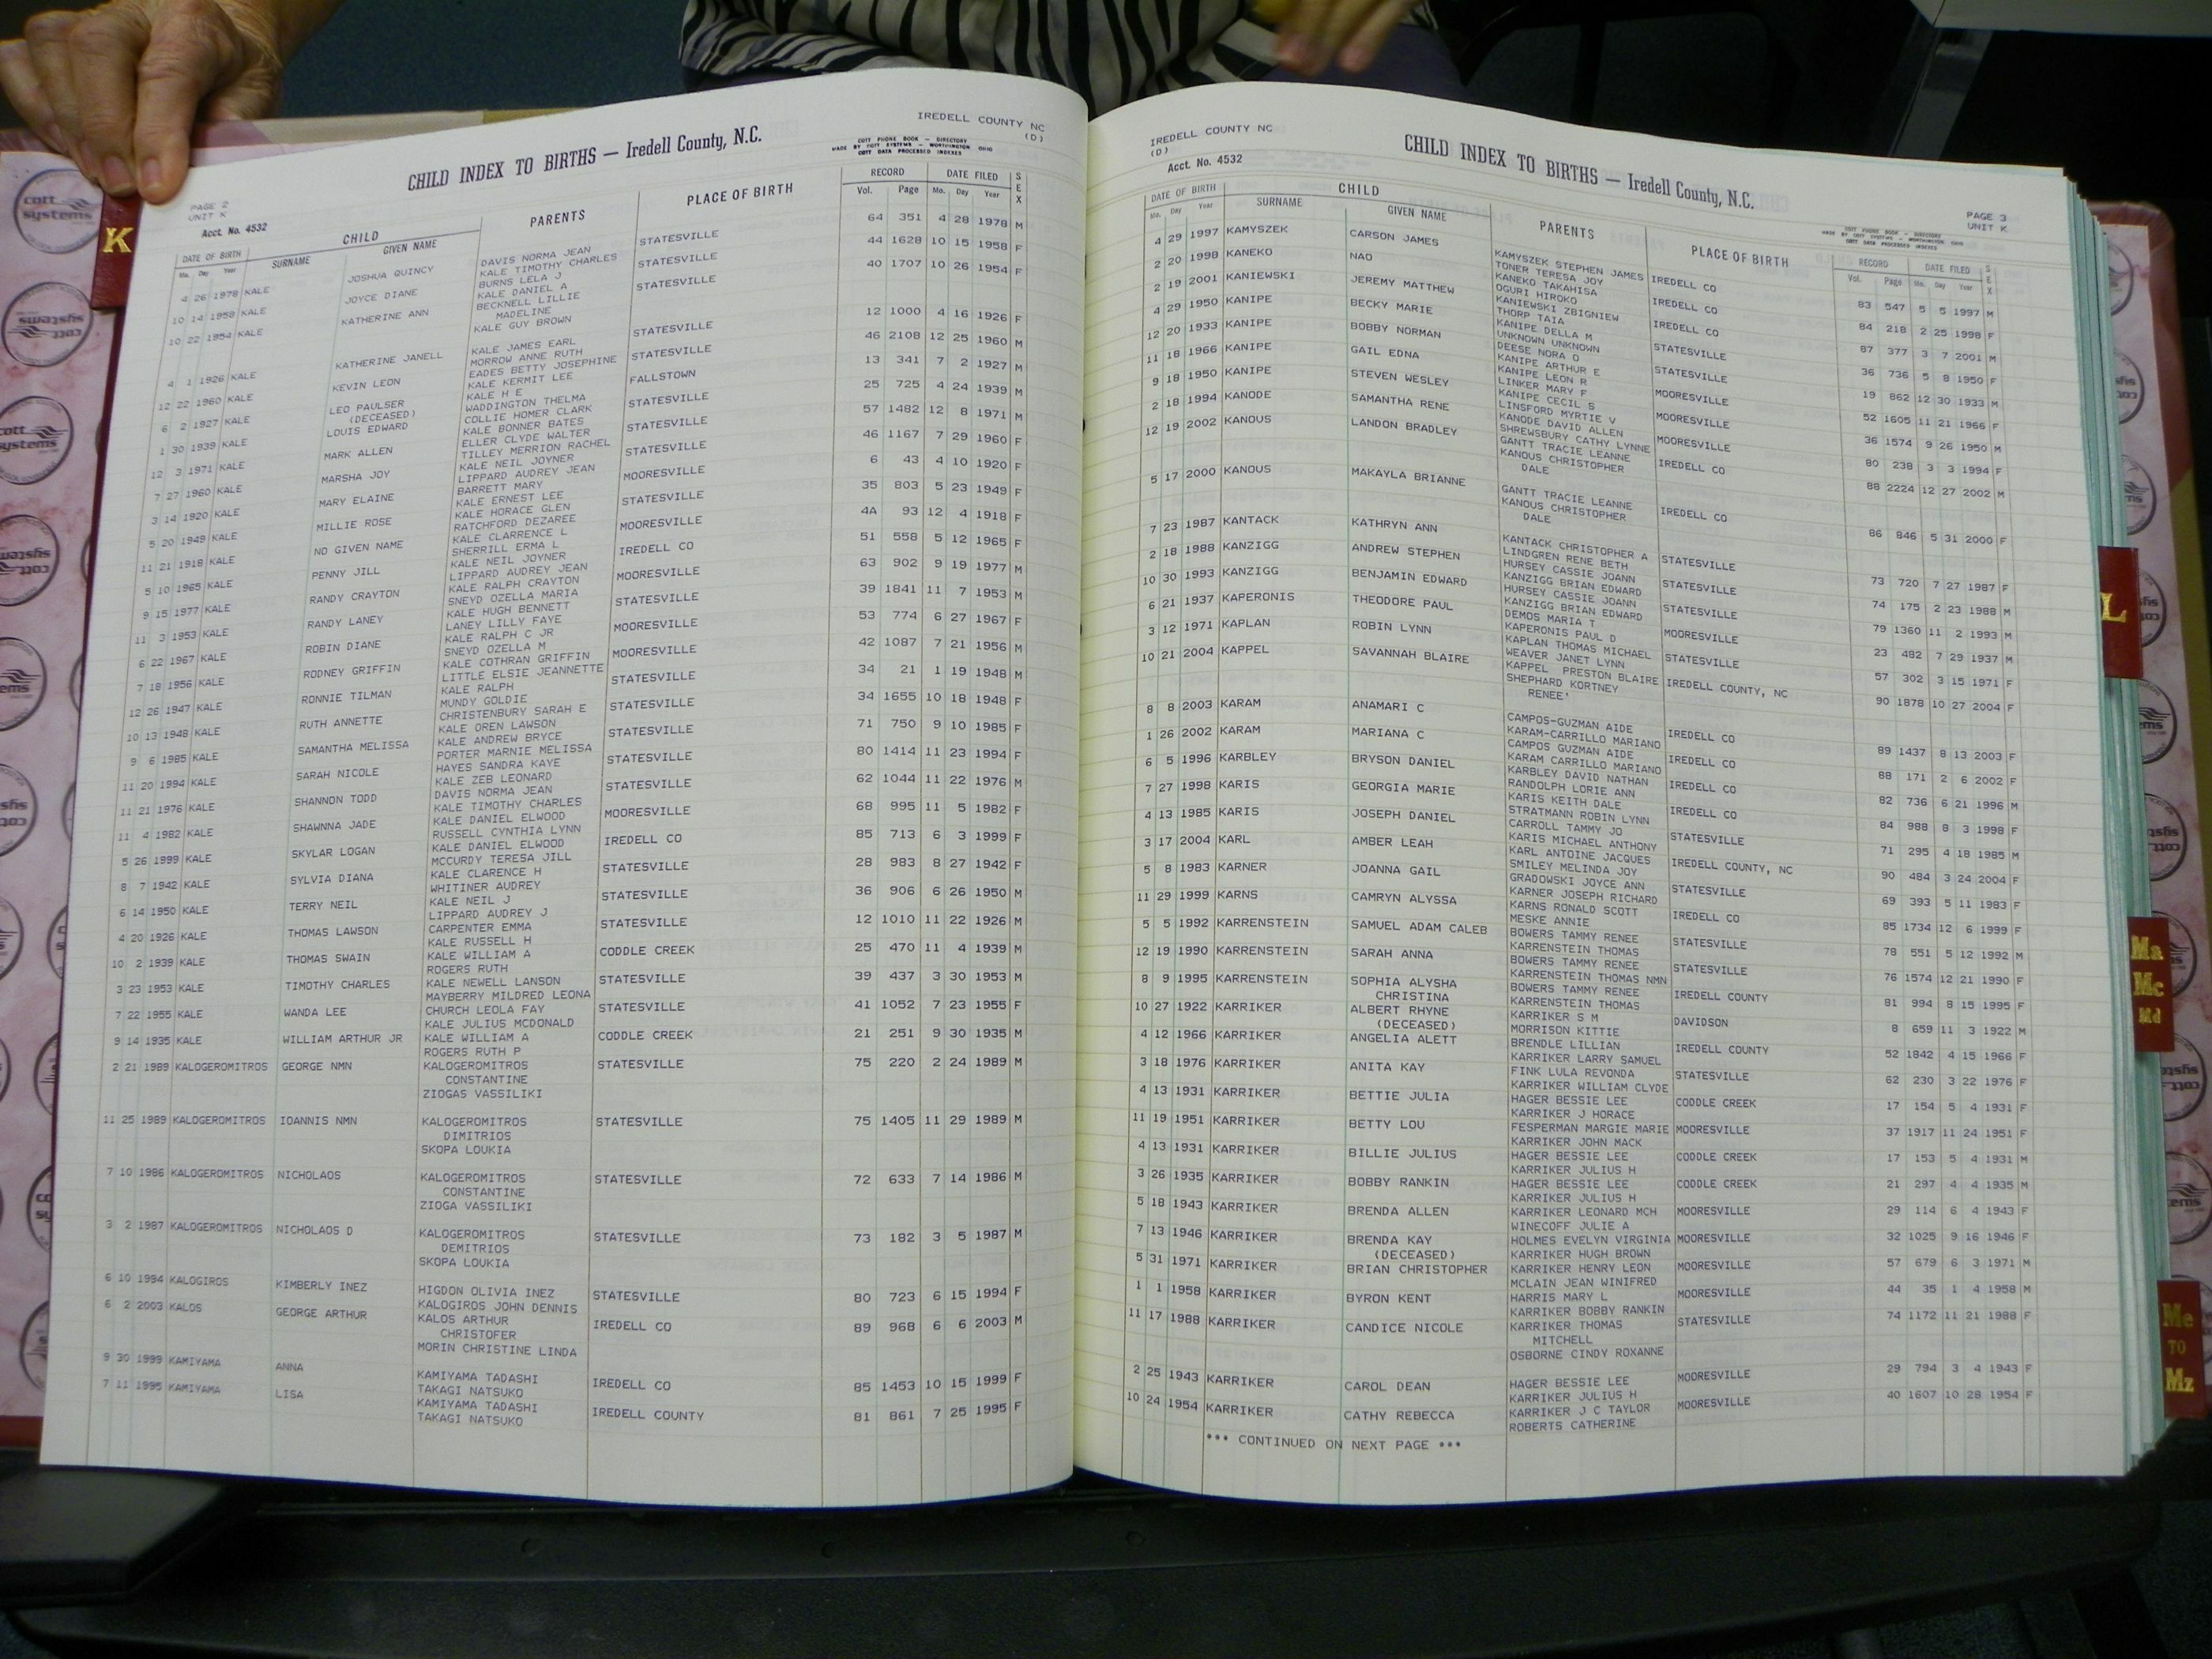 IREDELL COUNTY NC
(D)
CHILD INDEX TO BIRTHS — Iredell County, N.C.
COTT PHONE BOOK — DIRECTORY
MADE BY COTT SYSTEMS — WORTHINGTON OHIO
COTT DATA PROCESSED INDEXES
PAGE 2
UNIT K
Acct. No. 4532
DATE OF BIRTH CHILD PARENTS PLACE OF BIRTH RECORD DATE FILED SEX
Mo. Day Year SURNAME GIVEN NAME Vol. Page Mo. Day Year
4 26 1978 KALE JOSHUA QUINCY DAVIS NORMA JEAN STATESVILLE 64 351 4 28 1978 M
KALE TIMOTHY CHARLES
10 14 1958 KALE JOYCE DIANE BURNS LELA J STATESVILLE 44 1628 10 15 1958 F
KALE DANIEL A
10 22 1954 KALE KATHERINE ANN BECKNELL LILLIE STATESVILLE 40 1707 10 26 1954 F
MADELINE
KALE GUY BROWN
4 1 1926 KALE KATHERINE JANELL KALE JAMES EARL STATESVILLE 12 1000 4 16 1926 F
MORROW ANNE RUTH
12 22 1960 KALE KEVIN LEON EADES BETTY JOSEPHINE STATESVILLE 46 2108 12 25 1960 M
KALE KERMIT LEE
6 2 1927 KALE LEO PAULSER KALE H E FALLSTOWN 13 341 7 2 1927 M
(DECEASED) WADDINGTON THELMA
1 30 1939 KALE LOUIS EDWARD COLLIE HOMER CLARK STATESVILLE 25 725 4 24 1939 M
KALE BONNER BATES
12 3 1971 KALE MARK ALLEN ELLER CLYDE WALTER STATESVILLE 57 1482 12 8 1971 M
TILLEY MERRION RACHEL
7 27 1960 KALE MARSHA JOY KALE NEIL JOYNER STATESVILLE 46 1167 7 29 1960 F
LIPPARD AUDREY JEAN
3 14 1920 KALE MARY ELAINE BARRETT MARY MOORESVILLE 6 43 4 10 1920 F
KALE ERNEST LEE
5 20 1949 KALE MILLIE ROSE KALE HORACE GLEN STATESVILLE 35 803 5 23 1949 F
RATCHFORD DEZAREE
11 21 1918 KALE NO GIVEN NAME KALE CLARRENCE L MOORESVILLE 4A 93 12 4 1918 F
SHERRILL ERMA L
5 10 1965 KALE PENNY JILL KALE NEIL JOYNER IREDELL CO 51 558 5 12 1965 F
LIPPARD AUDREY JEAN
9 15 1977 KALE RANDY CRAYTON KALE RALPH CRAYTON MOORESVILLE 63 902 9 19 1977 M
SNEYD OZELLA MARIA
11 3 1953 KALE RANDY LANEY KALE HUGH BENNETT STATESVILLE 39 1841 11 7 1953 M
LANEY LILLY FAYE
6 22 1967 KALE ROBIN DIANE KALE RALPH C JR MOORESVILLE 53 774 6 27 1967 F
SNEYD OZELLA M
7 18 1956 KALE RODNEY GRIFFIN KALE COTHRAN GRIFFIN MOORESVILLE 42 1087 7 21 1956 M
LITTLE ELSIE JEANNETTE
12 26 1947 KALE RONNIE TILMAN KALE RALPH STATESVILLE 34 21 1 19 1948 M
MUNDY GOLDIE
10 13 1948 KALE RUTH ANNETTE CHRISTENBURY SARAH E STATESVILLE 34 1655 10 18 1948 F
KALE OREN LAWSON
9 6 1985 KALE SAMANTHA MELISSA KALE ANDREW BRYCE STATESVILLE 71 750 9 10 1985 F
PORTER MARNIE MELISSA
11 20 1994 KALE SARAH NICOLE HAYES SANDRA KAYE STATESVILLE 80 1414 11 23 1994 F
KALE ZEB LEONARD
11 21 1976 KALE SHANNON TODD DAVIS NORMA JEAN STATESVILLE 62 1044 11 22 1976 M
KALE TIMOTHY CHARLES
11 4 1982 KALE SHAWNNA JADE KALE DANIEL ELWOOD MOORESVILLE 68 995 11 5 1982 F
RUSSELL CYNTHIA LYNN
5 26 1999 KALE SKYLAR LOGAN KALE DANIEL ELWOOD IREDELL CO 85 713 6 3 1999 F
MCCURDY TERESA JILL
8 7 1942 KALE SYLVIA DIANA KALE CLARENCE H STATESVILLE 28 983 8 27 1942 F
WHITINER AUDREY
6 14 1950 KALE TERRY NEIL KALE NEIL J STATESVILLE 36 906 6 26 1950 M
LIPPARD AUDREY J
4 20 1926 KALE THOMAS LAWSON CARPENTER EMMA STATESVILLE 12 1010 11 22 1926 M
KALE RUSSELL H
10 2 1939 KALE THOMAS SWAIN KALE WILLIAM A CODDLE CREEK 25 470 11 4 1939 M
ROGERS RUTH
3 23 1953 KALE TIMOTHY CHARLES KALE NEWELL LANSON STATESVILLE 39 437 3 30 1953 M
MAYBERRY MILDRED LEONA
7 22 1955 KALE WANDA LEE CHURCH LEOLA FAY STATESVILLE 41 1052 7 23 1955 F
KALE JULIUS MCDONALD
9 14 1935 KALE WILLIAM ARTHUR JR KALE WILLIAM A CODDLE CREEK 21 251 9 30 1935 M
ROGERS RUTH P
2 21 1989 KALOGEROMITROS GEORGE NMN KALOGEROMITROS STATESVILLE 75 220 2 24 1989 M
CONSTANTINE
ZIOGAS VASSILIKI
11 25 1989 KALOGEROMITROS IOANNIS NMN KALOGEROMITROS STATESVILLE 75 1405 11 29 1989 M
DIMITRIOS
SKOPA LOUKIA
7 10 1986 KALOGEROMITROS NICHOLAOS KALOGEROMITROS STATESVILLE 72 633 7 14 1986 M
CONSTANTINE
ZIOGA VASSILIKI
3 2 1987 KALOGEROMITROS NICHOLAOS D KALOGEROMITROS STATESVILLE 73 182 3 5 1987 M
DEMITRIOS
SKOPA LOUKIA
6 10 1994 KALOGIROS KIMBERLY INEZ HIGDON OLIVIA INEZ STATESVILLE 80 723 6 15 1994 F
KALOGIROS JOHN DENNIS
6 2 2003 KALOS GEORGE ARTHUR KALOS ARTHUR IREDELL CO 89 968 6 6 2003 M
CHRISTOFER
MORIN CHRISTINE LINDA
9 30 1999 KAMIYAMA ANNA KAMIYAMA TADASHI IREDELL CO 85 1453 10 15 1999 F
TAKAGI NATSUKO
7 11 1995 KAMIYAMA LISA KAMIYAMA TADASHI IREDELL COUNTY 81 861 7 25 1995 F
TAKAGI NATSUKO
IREDELL COUNTY NC
(D)
Acct. No. 4532
CHILD INDEX TO BIRTHS — Iredell County, N.C.
COTT PHONE BOOK — DIRECTORY
MADE BY COTT SYSTEMS — WORTHINGTON OHIO
COTT DATA PROCESSED INDEXES
PAGE 3
UNIT K
DATE OF BIRTH CHILD PARENTS PLACE OF BIRTH RECORD DATE FILED SEX
Mo. Day Year SURNAME GIVEN NAME Vol. Page Mo. Day Year
4 29 1997 KAMYSZEK CARSON JAMES KAMYSZEK STEPHEN JAMES IREDELL CO 83 547 5 5 1997 M
TONER TERESA JOY
2 20 1998 KANEKO NAO KANEKO TAKAHISA IREDELL CO 84 218 2 25 1998 F
OGURI HIROKO
2 19 2001 KANIEWSKI JEREMY MATTHEW KANIEWSKI ZBIGNIEW IREDELL CO 87 377 3 7 2001 M
THORP TAIA
4 29 1950 KANIPE BECKY MARIE KANIPE DELLA M STATESVILLE 36 736 5 8 1950 F
UNKNOWN UNKNOWN
12 20 1933 KANIPE BOBBY NORMAN DEESE NORA O STATESVILLE 19 862 12 30 1933 M
KANIPE ARTHUR E
11 18 1966 KANIPE GAIL EDNA KANIPE LEON R MOORESVILLE 52 1605 11 21 1966 F
LINKER MARY F
9 18 1950 KANIPE STEVEN WESLEY KANIPE CECIL S MOORESVILLE 36 1574 9 26 1950 M
LINSFORD MYRTIE V
2 18 1994 KANODE SAMANTHA RENE KANODE DAVID ALLEN MOORESVILLE 80 238 3 3 1994 F
SHREWSBURY CATHY LYNNE
12 19 2002 KANOUS LANDON BRADLEY GANTT TRACIE LEANNE IREDELL CO 88 2224 12 27 2002 M
KANOUS CHRISTOPHER
DALE
5 17 2000 KANOUS MAKAYLA BRIANNE GANTT TRACIE LEANNE IREDELL CO 86 846 5 31 2000 F
KANOUS CHRISTOPHER
DALE
7 23 1987 KANTACK KATHRYN ANN KANTACK CHRISTOPHER A STATESVILLE 73 720 7 27 1987 F
LINDGREN RENE BETH
2 18 1988 KANZIGG ANDREW STEPHEN HURSEY CASSIE JOANN STATESVILLE 74 175 2 23 1988 M
KANZIGG BRIAN EDWARD
10 30 1993 KANZIGG BENJAMIN EDWARD HURSEY CASSIE JOANN STATESVILLE 79 1360 11 2 1993 M
KANZIGG BRIAN EDWARD
6 21 1937 KAPERONIS THEODORE PAUL DEMOS MARIA T MOORESVILLE 23 482 7 29 1937 M
KAPERONIS PAUL D
3 12 1971 KAPLAN ROBIN LYNN KAPLAN THOMAS MICHAEL STATESVILLE 57 302 3 15 1971 F
WEAVER JANET LYNN
10 21 2004 KAPPEL SAVANNAH BLAIRE KAPPEL PRESTON BLAIRE IREDELL COUNTY, NC 90 1878 10 27 2004 F
SHEPHARD KORTNEY
RENEE'
8 8 2003 KARAM ANAMARI C CAMPOS-GUZMAN AIDE IREDELL CO 89 1437 8 13 2003 F
KARAM-CARRILLO MARIANO
1 26 2002 KARAM MARIANA C CAMPOS GUZMAN AIDE IREDELL CO 88 171 2 6 2002 F
KARAM CARRILLO MARIANO
6 5 1996 KARBLEY BRYSON DANIEL KARBLEY DAVID NATHAN IREDELL CO 82 736 6 21 1996 M
RANDOLPH LORIE ANN
7 27 1998 KARIS GEORGIA MARIE KARIS KEITH DALE IREDELL CO 84 988 8 3 1998 F
STRATMANN ROBIN LYNN
4 13 1985 KARIS JOSEPH DANIEL CARROLL TAMMY JO STATESVILLE 71 295 4 18 1985 M
KARIS MICHAEL ANTHONY
3 17 2004 KARL AMBER LEAH KARL ANTOINE JACQUES IREDELL COUNTY, NC 90 484 3 24 2004 F
SMILEY MELINDA JOY
5 8 1983 KARNER JOANNA GAIL GRADOWSKI JOYCE ANN STATESVILLE 69 393 5 11 1983 F
KARNER JOSEPH RICHARD
11 29 1999 KARNS CAMRYN ALYSSA KARNS RONALD SCOTT IREDELL CO 85 1734 12 6 1999 F
MESKE ANNIE
5 5 1992 KARRENSTEIN SAMUEL ADAM CALEB BOWERS TAMMY RENEE STATESVILLE 78 551 5 12 1992 M
KARRENSTEIN THOMAS
12 19 1990 KARRENSTEIN SARAH ANNA BOWERS TAMMY RENEE STATESVILLE 76 1574 12 21 1990 F
KARRENSTEIN THOMAS NMN
8 9 1995 KARRENSTEIN SOPHIA ALYSHA BOWERS TAMMY RENEE IREDELL COUNTY 81 994 8 15 1995 F
CHRISTINA KARRENSTEIN THOMAS
10 27 1922 KARRIKER ALBERT RHYNE KARRIKER S M DAVIDSON 8 659 11 3 1922 M
(DECEASED) MORRISON KITTIE
4 12 1966 KARRIKER ANGELIA ALETT BRENDLE LILLIAN IREDELL COUNTY 52 1842 4 15 1966 F
KARRIKER LARRY SAMUEL
3 18 1976 KARRIKER ANITA KAY FINK LULA REVONDA STATESVILLE 62 230 3 22 1976 F
KARRIKER WILLIAM CLYDE
4 13 1931 KARRIKER BETTIE JULIA HAGER BESSIE LEE CODDLE CREEK 17 154 5 4 1931 F
KARRIKER J HORACE
11 19 1951 KARRIKER BETTY LOU FESPERMAN MARGIE MARIE MOORESVILLE 37 1917 11 24 1951 F
KARRIKER JOHN MACK
4 13 1931 KARRIKER BILLIE JULIUS HAGER BESSIE LEE CODDLE CREEK 17 153 5 4 1931 M
KARRIKER JULIUS H
3 26 1935 KARRIKER BOBBY RANKIN HAGER BESSIE LEE CODDLE CREEK 21 297 4 4 1935 M
KARRIKER JULIUS H
5 18 1943 KARRIKER BRENDA ALLEN KARRIKER LEONARD MCH MOORESVILLE 29 114 6 4 1943 F
WINECOFF JULIE A
7 13 1946 KARRIKER BRENDA KAY HOLMES EVELYN VIRGINIA MOORESVILLE 32 1025 9 16 1946 F
(DECEASED) KARRIKER HUGH BROWN
5 31 1971 KARRIKER BRIAN CHRISTOPHER KARRIKER HENRY LEON MOORESVILLE 57 679 6 3 1971 M
MCLAIN JEAN WINIFRED
1 1 1958 KARRIKER BYRON KENT HARRIS MARY L MOORESVILLE 44 35 1 4 1958 M
KARRIKER BOBBY RANKIN
11 17 1988 KARRIKER CANDICE NICOLE KARRIKER THOMAS STATESVILLE 74 1172 11 21 1988 F
MITCHELL
OSBORNE CINDY ROXANNE
2 25 1943 KARRIKER CAROL DEAN HAGER BESSIE LEE MOORESVILLE 29 794 3 4 1943 F
KARRIKER JULIUS H
10 24 1954 KARRIKER CATHY REBECCA KARRIKER J C TAYLOR MOORESVILLE 40 1607 10 28 1954 F
ROBERTS CATHERINE
*** CONTINUED ON NEXT PAGE ***
K
L
Ma
Mc
Md
Me
TO
Mz
cott
systems